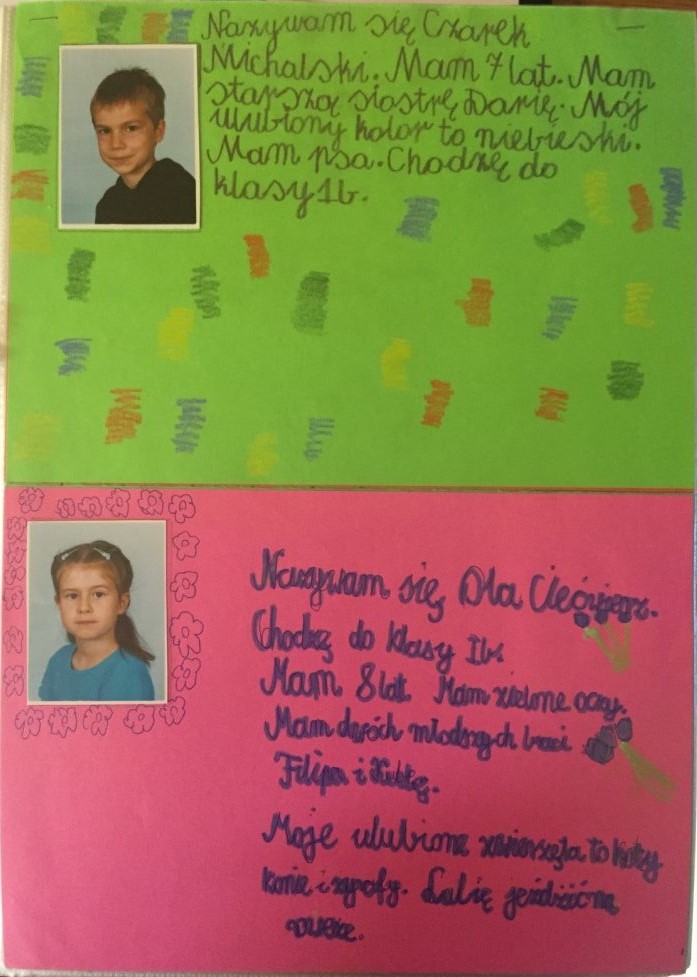 Nazywam się Czarek
Michalski. Mam 7 lat. Mam
starszą siostrę Darię. Mój
ulubiony kolor to niebieski.
Mam psa. Chodzę do
klasy 1b.
Nazywam się Ola
Chodzę do klasy Ib.
Mam 8 lat Mam zielone oczy.
Mam dwóch młodszych braci
Filipa i Kubę.
Moje ulubione zwierzęta to koty
konie i żyrafy. Lubię jeździć na